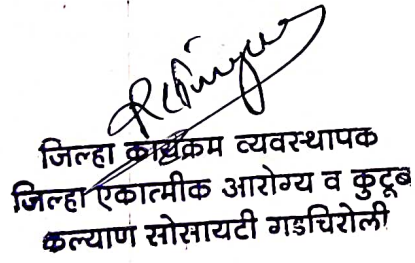 जिल्हा कार्यक्रम व्यवस्थापक
जिल्हा एकात्मीक आरोग्य व कुटूब
कल्याण सोसायटी गडचिरोली